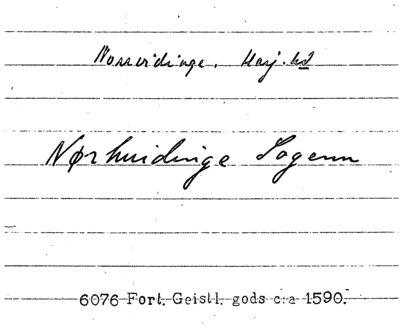 Norrvidinge, Harj. hd
Nørhuidinge Sogenn
6076 Fort. Geistl. gods c:a 1590.